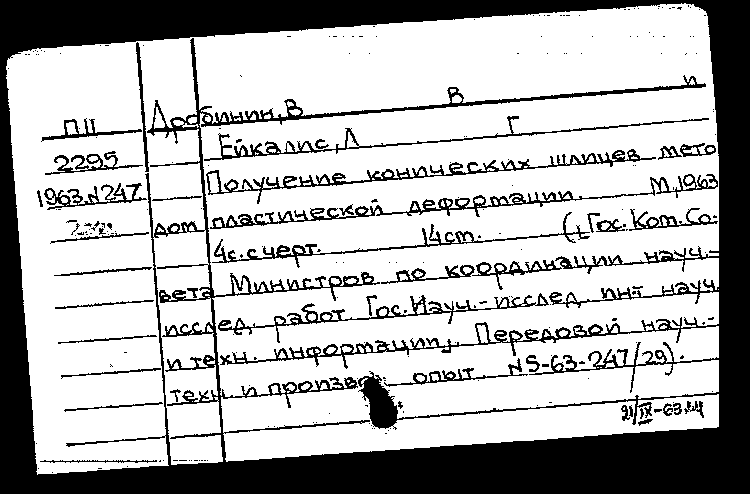 Дробинин, В В и
П11
Ейкалис, Л Г
2295
Получение конических шлицев мето
1963.N247
дом пластической деформации. М, 1963
4с. с черт. 14 cm. (Гос. Ком. Со-
вета Министров по координации науч.-
исслед. работ. Гос. Науч.-исслед. инт науч.
и техн. информации. Передовой науч.-
техн. и произв. опыт. NS-63-247/29).
21/IX-63